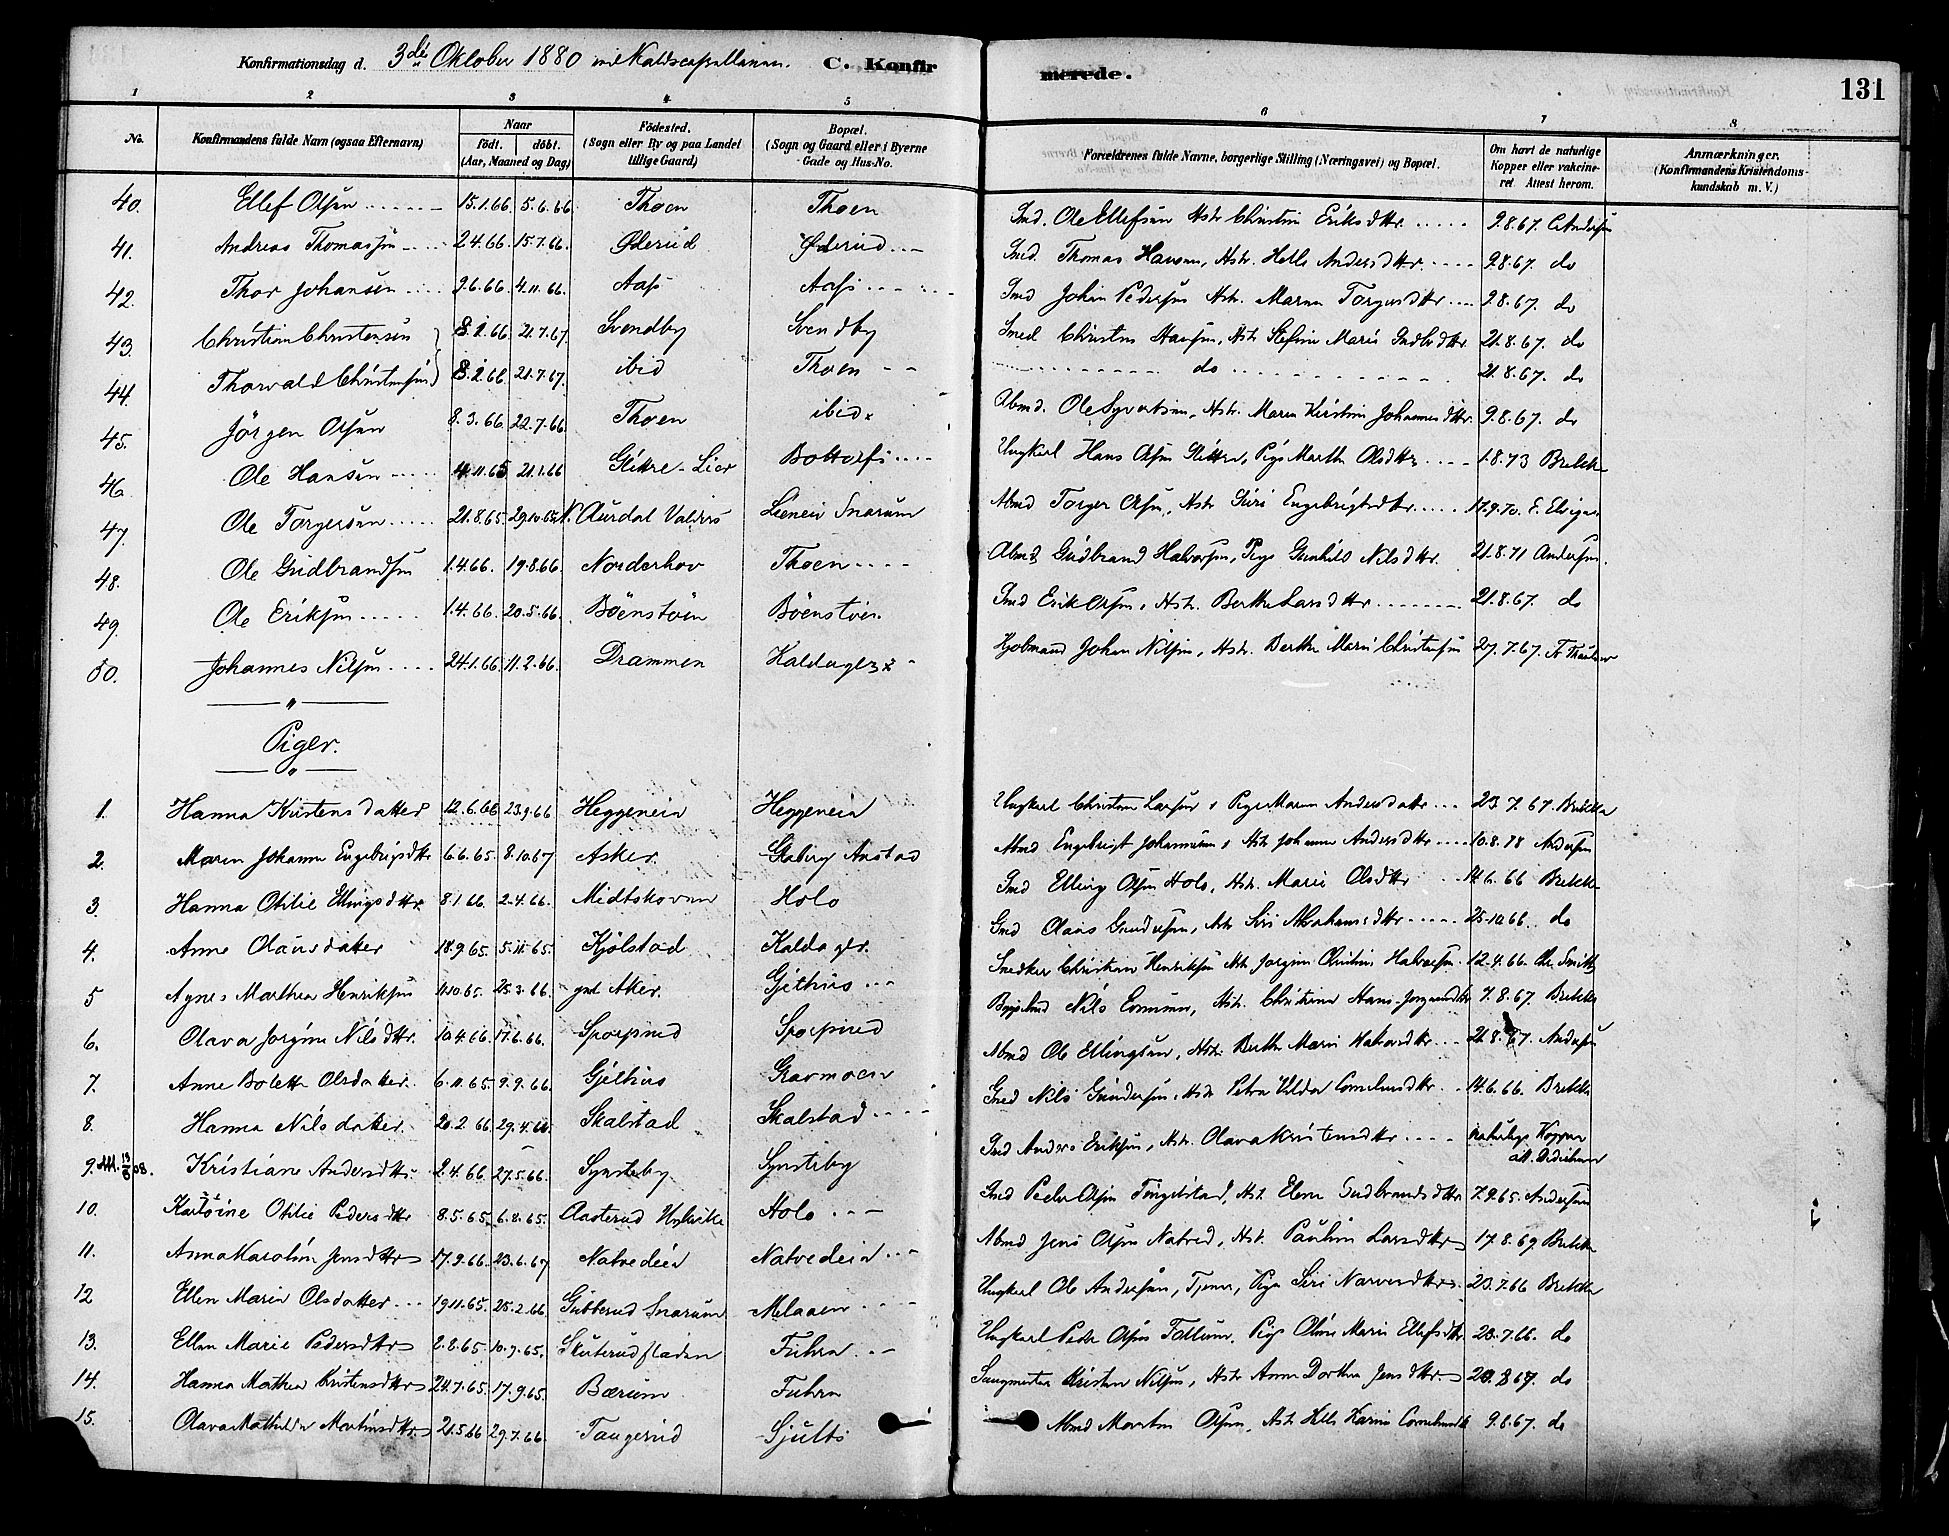 Konfirmationsdag d. 3die Oktober 1880 C. Konfirmerede. 131
1 2 3 4 5 6 7 8
No. Konfirmandens fulde Navn (ogsaa Efternavn) Naar födt. döbt. (Aar, Maaned og Dag) Födested. (Sogn eller By og paa Landet tillige Gaard) Bopæl. (Sogn og Gaard eller i Byerne Gade og Hus-No. Forældrenes fulde Navne, borgerlige Stilling (Næringsvei) og Bopæl. Om havt de naturlige Kopper eller vakcineret Attest herom. Anmærkninger. (Konfirmandens Kristendomskundskab m. V.)
40. Ellef Olsen 15.1.66. 5.6.66. Thoen Thoen Ole Ellefsen Hstr Christine Eriksdttr. 9.8.67. Andersen
41. Andreas Thomassen 2.4.66. 15.7.66. Öderud Öderud Thomas Hansen, Hstr. Helle Andersdttr. 9.8.67. do
42. Thor Johansen 9.6.66 4.11.66. Aas Aas Johan Pedersen Hstr. Maren Torgersdttr 9.8.67. do
43. Christian Christensen 8.1.66 21.7.67. Svendby Svendby Christen Hansen, Hstr Marie 21.8.67. do
44. Thorvald Christensen 8.1.66 21.7.67. ibid Thoen do 21.8.67. do
45. Jörgen Olsen 8.3.66 22.7.66. Thoen ibid. Abmd. Ole Syvertsen, Hstr. Maren Kirstine Johannesdttr. 9.8.67. do
46. Ole Hansen 4.11.65 21.1.66 Glittre-Lier Ungkarl Hans Olsen Glittre, Pige Marthe Olsdttr 1.8.73 Brekke
47. Ole Torgersen 21.8.65. 29.10.65 N. Aurdal Valders Lieneie Snarum Abmd Torger Olsen, Hstr Siri Engebrigtsdttr. 17.9.70. E.
48. Ole Gudbrandsen 1.4.66. 19.8.66. Norderhov Thoen Abmd Gudbrand Halvorsen, Pige Gunhild Nilsdttr. 21.8.71 Andersen.
49. Ole Eriksen 1.4.66. 20.5.66. Böenstöen Böenstöen. Erik Olsen, Hstr. Berthe Larsdttr 21.8.67. do
50. Johannes Nilsen 24.1.66 11.2.66. Drammen Kaldager Johan Nilsen, Hstr. Berthe Marie Christensen 27.7.67.
Piger.
1. Hanna Kristensdatter 12.6.66 23.9.66 Heggeneie Heggeneie Ungkarl Christen Larsen, Pige Maren Andersdattr 23.7.67. Brekke
2. Maren Johanne Engebrigsdttr 6.6.65. 8.10.67 Asker. Anstad Abmd Engebrigt Johannesen, Hstr Johanne Andersdttr 10.8.78 Andersen
3. Hanna Otilie Ellingsdttr. 8.1.66. 2.4.66. Midtskoven Holo Elling Olsen Holo, Hstr. Marie Olsdttr 14.6.66 Brekke
4. Anne Olausdatter 18.9.65. 5.11.65. Kjölstad Kaldager. Olaus Gundersen, Hstr Siri Abrahamsdttr 25.10.66. do
5 Agnes Marthea Henriksen 4.10.65. 25.3.66. Aker. Gjethus Snedker Christian Henriksen Hstr Jorgine Christine Halvorsen. 12.4.66. Chr. Smith
6. Olava Jorgine Nilsdttr. 10.4.66. 17.6.66. Sporpind Sporpind Nils Hstr. Christiane 7.8.67. Brekke
7. Anne Bolette Olsdatter. 6.11.65. 9.9.66. Gjethus Gravmoen Abmd Ole Ellingsen, Hstr. Berthe Marie Halvorsdttr 21.8.67. Andersen
8. Hanna Nilsdatter. 20.2.66 29.4.66. Skalstad Skalstad Nils Gundersen, Hstr Petra Corneliusdttr. 14.6.66. Brekke
9. Kristiane Andersdttr. 2.4.66. 27.5.66. Synsteby Synsteby Anders Eriksen, Hstr. Olava Kristensdttr naturlige Kopper
10. Otilie Pedersdttr 8.5.65. 6.8.65. Aasterud Holo Peder Olsen Tingelstad, Hst. Elene Gudbrandsdttr 7.9.65. Andersen
11. Anna Karoline Jensdttr 17.9.66. 23.6.67 Natvedeie Natvedeie Abmd Jens Olsen Natved, Hst. Pauline Larsdttr 17.8.69 Brekke
12 Ellen Marie Olsdatter 19.11.65. 25.2.66 Gubberud Snarum Melaaen Ungkarl Ole Andersen, Tjener, Pige Siri Narvesdttr. 23.7.66 Brekke
13. Ellen Marie Pedersdttr 2.8.65. 10.9.65. Skuterudfladen Fuhra Ungkarl Peder Olsen Pige Oline Marie Ellefsdttr. 23.7.66. do
14. Hanna Mathea Kristensdttr 24.7.65. 17.9.65. Bærum Fuhra Saugmester Kristen Nilsen, Hstr Anne Dorthea Jensdttr. do
15. Olava Mathilde Martinsdttr 21.5.66 29.7.66 Tangerud Sjults Abmd Morten Olsen, Hstr Helle Karine 9.8.67. do